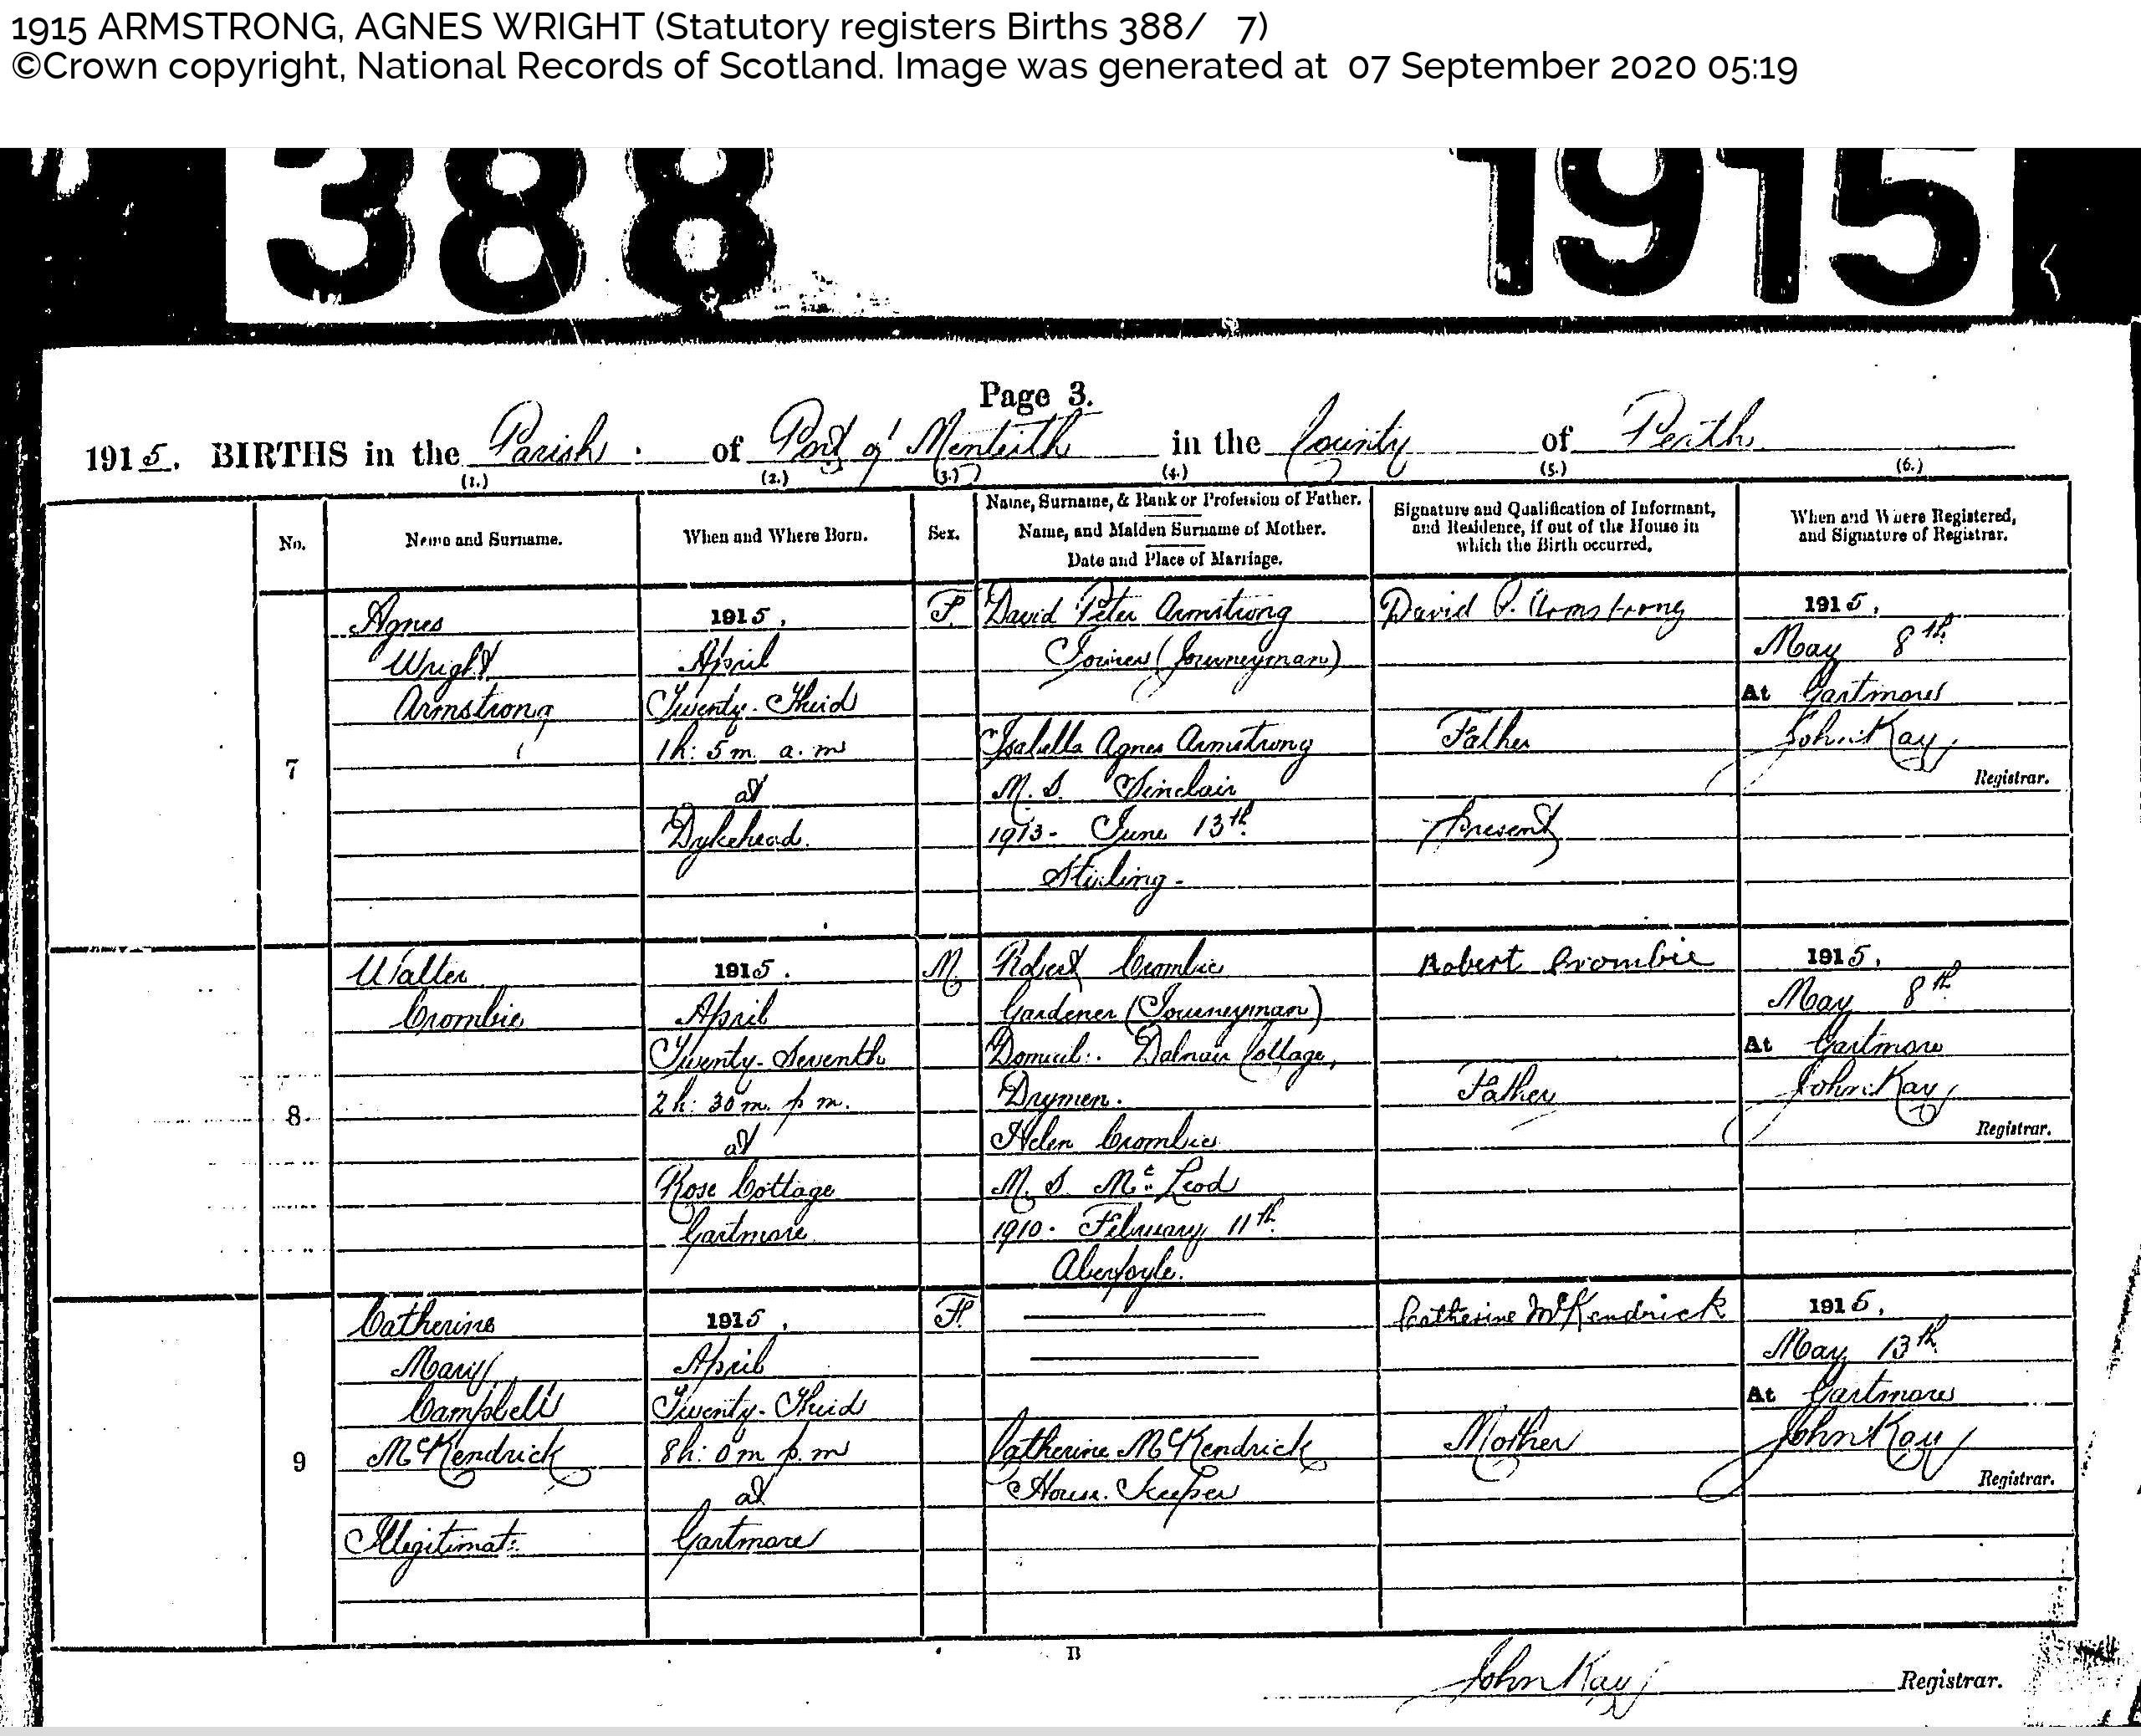 1915 ARMSTRONG, AGNES WRIGHT (Statutory registers Births 388/ 7)
©Crown copyright, National Records of Scotland. Image was generated at 07 September 2020 05:19
388 1915
Page 3.
1915. BIRTHS in the Parish of Port of Menteith in the County of Perth
(1.) (2.) (3.) (4.) (5.) (6.)
No.
Name and Surname.
When and Where Born.
Sex.
Name, Surname, & Rank or Profession of Father.
Name, and Maiden Surname of Mother.
Date and Place of Marriage.
Signature and Qualification of Informant,
and Residence, if out of the House in
which the Birth occurred.
When and Where Registered,
and Signature of Registrar.
7
Agnes
Wright
Armstrong
1915.
April
Twenty-Third
1h: 5m. a.m
at
Dykehead.
F.
David Peter Armstrong
Joiner (Journeyman)
Isabella Agnes Armstrong
M.S. Sinclair
1913 - June 13th
Stirling -
David P. Armstrong
Father
Present
1915.
May 8th
At Gartmore
John Kay
Registrar.
8
Walter
Crombie
1915.
April
Twenty-Seventh
2h: 30m. p m.
at
Rose Cottage
Gartmore
M.
Robert Crombie
Gardener (Journeyman)
Domicil: Dalnair Cottage,
Drymen.
Helen Crombie
M.S. McLeod
1910 - February 11th
Aberfoyle.
Robert Crombie
Father
1915.
May 8th
At Gartmore
John Kay
Registrar.
9
Catherine
Mary
Campbell
McKendrick
Illegitimate
1915.
April
Twenty-Third
8h: 0m p.m
at
Gartmore
F.
Catherine McKendrick
House-Keeper
Catherine McKendrick
Mother
1915.
May 13th
At Gartmore
John Kay
Registrar.
B
John Kay Registrar.